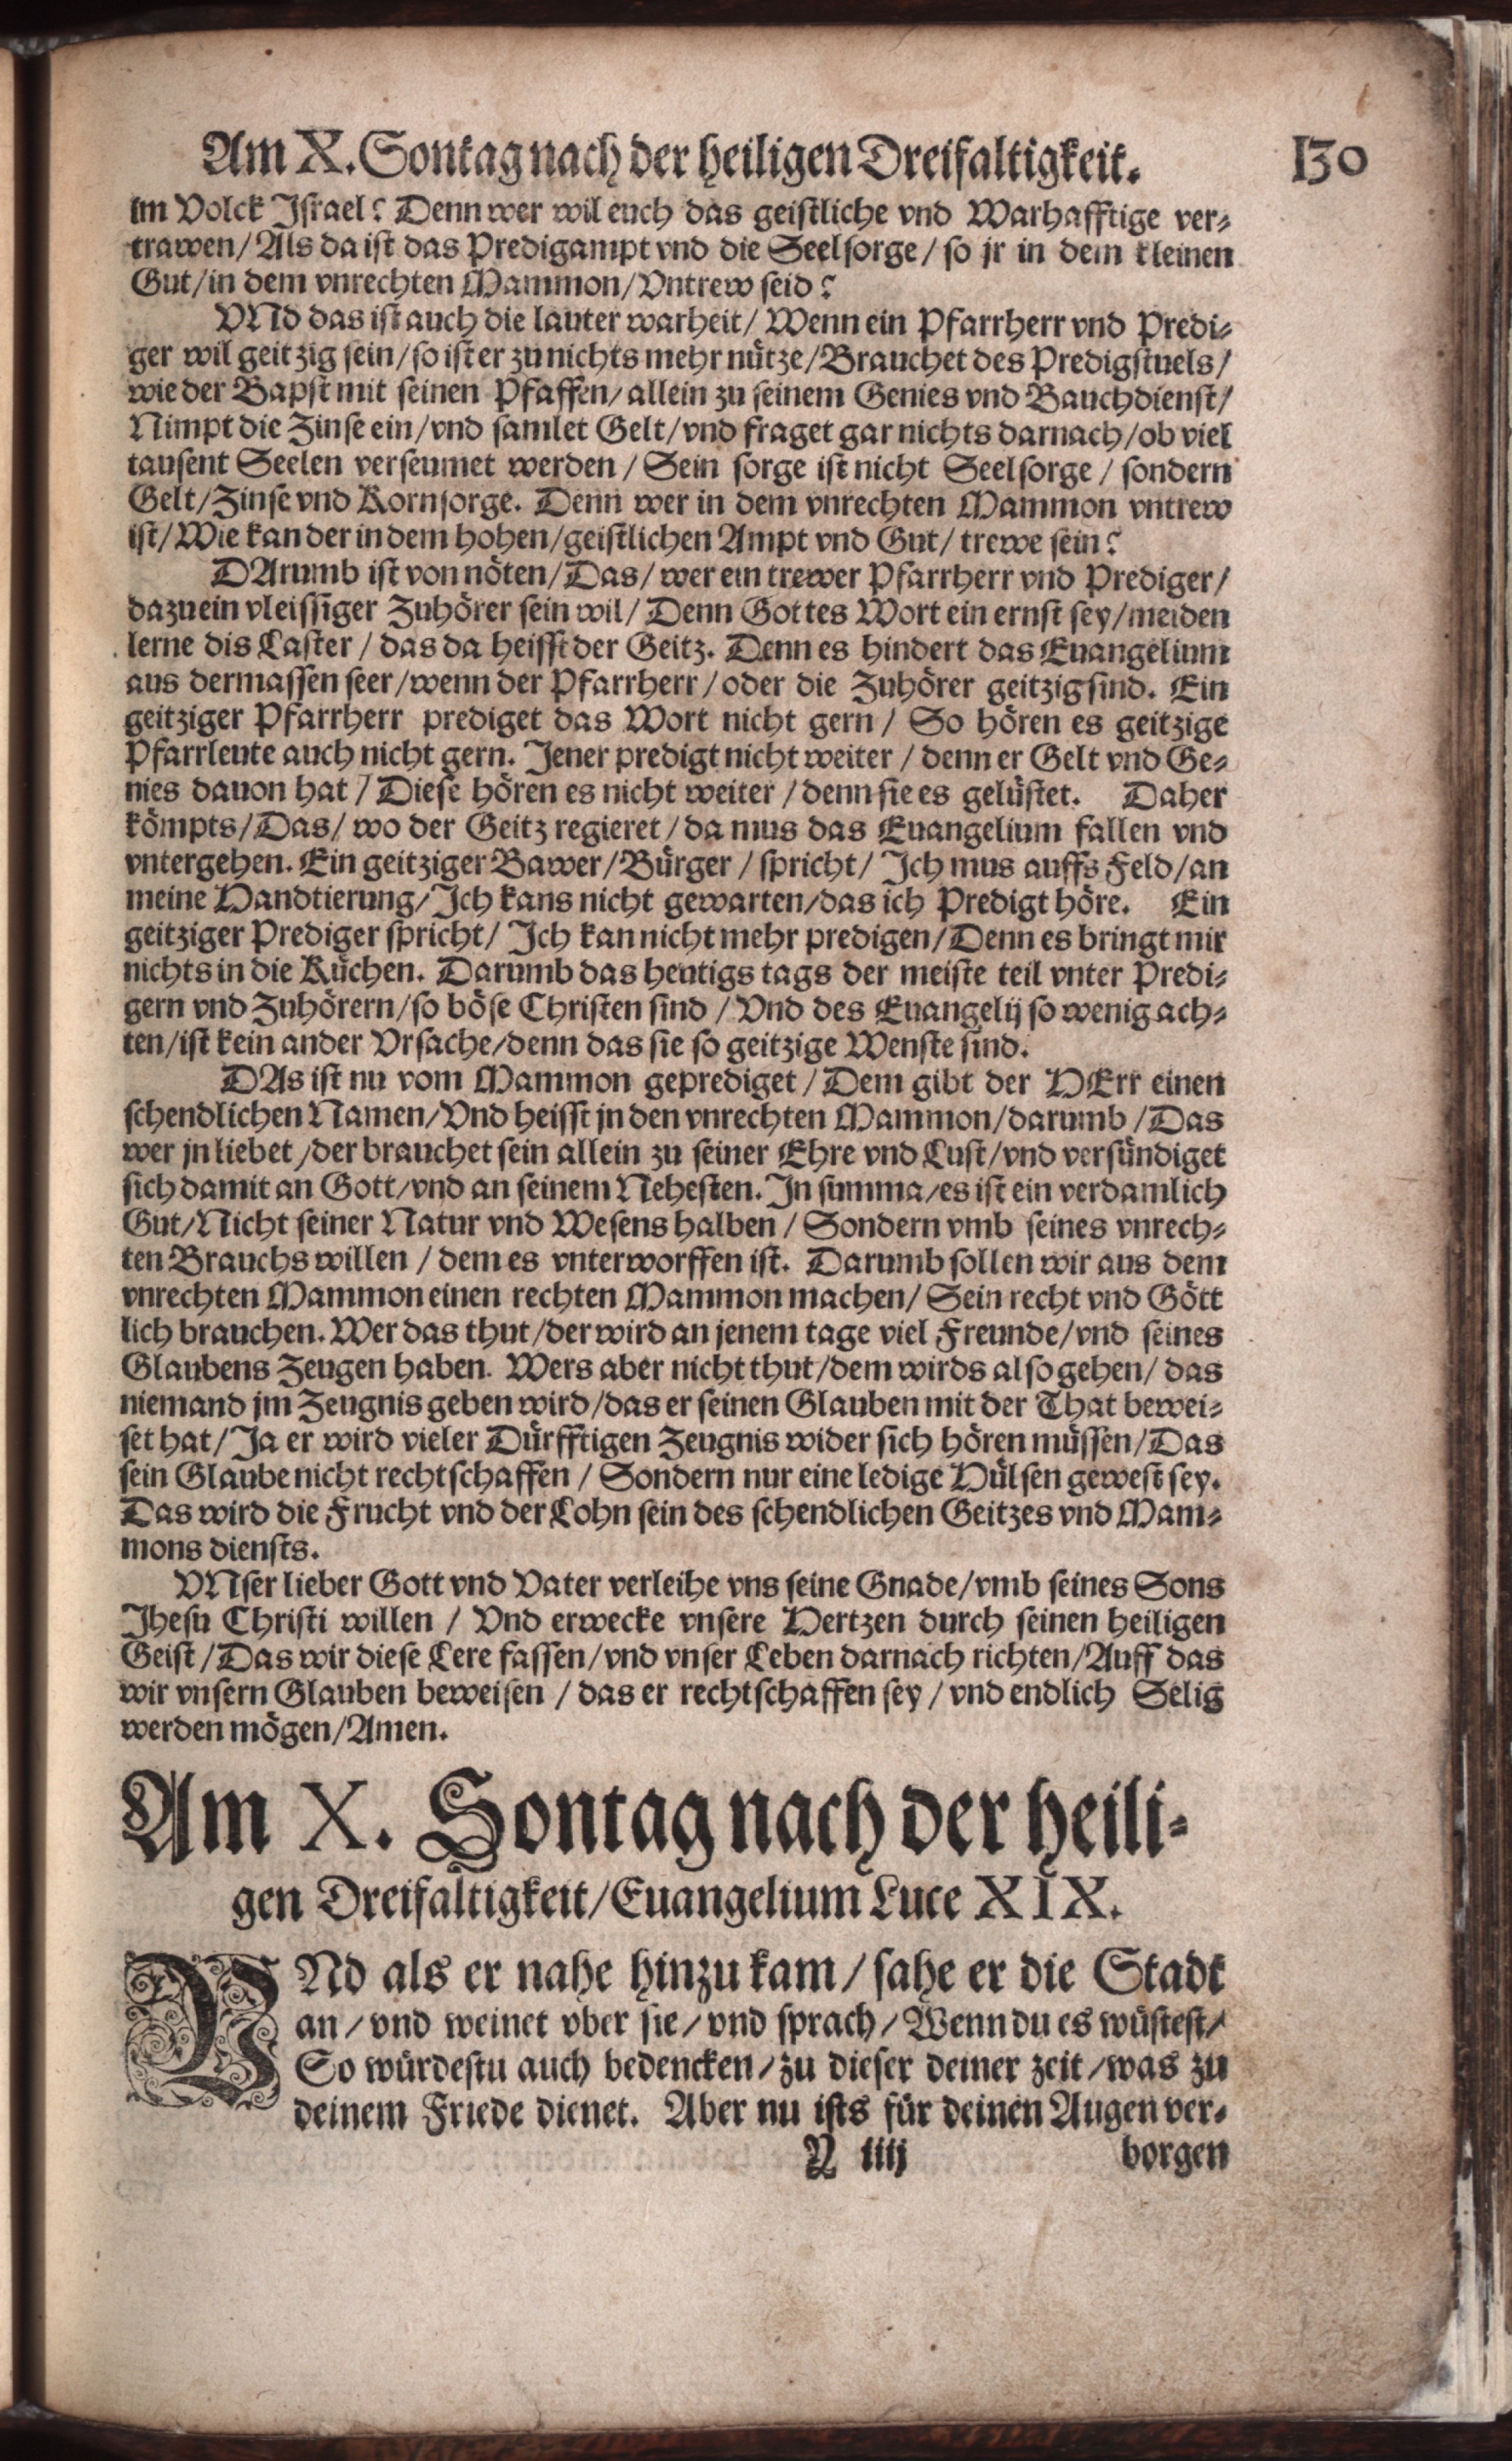 Am X. Sontag nach der heiligen Dreifaltigkeit. 130
im Volck Israel? Denn wer wil euch das geistliche vnd Warhafftige ver⸗
trawen/Als da ist das Predigampt vnd die Seelsorge/so jr in dem kleinen
Gut/in dem vnrechten Mammon/Vntrew seid?
VNd das ist auch die lauter warheit/Wenn ein Pfarrherr vnd Predi⸗
ger wil geitzig sein/so ist er zu nichts mehr nütze/Brauchet des Predigstuels/
wie der Bapst mit seinen Pfaffen/allein zu seinem Genies vnd Bauchdienst/
Nimpt die Zinse ein/vnd samlet Gelt/vnd fraget gar nichts darnach/ob viel
tausent Seelen verseumet werden/Sein sorge ist nicht Seelsorge/sondern
Gelt/Zinse vnd Kornsorge. Denn wer in dem vnrechten Mammon vntrew
ist/Wie kan der in dem hohen/geistlichen Ampt vnd Gut/trewe sein?
DArumb ist von nöten/Das/wer ein trewer Pfarrherr vnd Prediger/
dazu ein vleissiger Zuhörer sein wil/Denn Gottes Wort ein ernst sey/meiden
lerne dis Laster/das da heisst der Geitz. Denn es hindert das Euangelium
aus dermassen seer/wenn der Pfarrherr/oder die Zuhörer geitzig sind. Ein
geitziger Pfarrherr prediget das Wort nicht gern/So hören es geitzige
Pfarrleute auch nicht gern. Jener predigt nicht weiter/denn er Gelt vnd Ge⸗
nies dauon hat/Diese hören es nicht weiter/denn sie es gelüstet. Daher
kömpts/Das/wo der Geitz regieret/da mus das Euangelium fallen vnd
vntergehen. Ein geitziger Bawer/Bürger/spricht/Ich mus auffs Feld/an
meine Handtierung/Ich kans nicht gewarten/das ich Predigt höre. Ein
geitziger Prediger spricht/Ich kan nicht mehr predigen/Denn es bringt mir
nichts in die Küchen. Darumb das heutigs tags der meiste teil vnter Predi⸗
gern vnd Zuhörern/so böse Christen sind/Vnd des Euangelij so wenig ach⸗
ten/ist kein ander Vrsache/denn das sie so geitzige Wenste sind.
DAs ist nu vom Mammon geprediget/Dem gibt der HErr einen
schendlichen Namen/Vnd heisst jn den vnrechten Mammon/darumb/Das
wer jn liebet/der brauchet sein allein zu seiner Ehre vnd Lust/vnd versündiget
sich damit an Gott/vnd an seinem Nehesten. In summa/es ist ein verdamlich
Gut/Nicht seiner Natur vnd Wesens halben/Sondern vmb seines vnrech⸗
ten Brauchs willen/dem es vnterworffen ist. Darumb sollen wir aus dem
vnrechten Mammon einen rechten Mammon machen/Sein recht vnd Gött
lich brauchen. Wer das thut/der wird an jenem tage viel Freunde/vnd seines
Glaubens Zeugen haben. Wers aber nicht thut/dem wirds also gehen/das
niemand jm Zeugnis geben wird/das er seinen Glauben mit der That bewei⸗
set hat/Ja er wird vieler Dürfftigen Zeugnis wider sich hören müssen/Das
sein Glaube nicht rechtschaffen/Sondern nur eine ledige Hülsen gewest sey.
Das wird die Frucht vnd der Lohn sein des schendlichen Geitzes vnd Mam⸗
mons diensts.
VNser lieber Gott vnd Vater verleihe vns seine Gnade/vmb seines Sons
Jhesu Christi willen/Vnd erwecke vnsere Hertzen durch seinen heiligen
Geist/Das wir diese Lere fassen/vnd vnser Leben darnach richten/Auff das
wir vnsern Glauben beweisen/das er rechtschaffen sey/vnd endlich Selig
werden mögen/Amen.
Am X. Sontag nach der heili⸗
gen Dreifaltigkeit/Euangelium Luce XIX.
VNd als er nahe hinzu kam/sahe er die Stadt
an/vnd weinet vber sie/vnd sprach/Wenn du es wüstest/
So würdestu auch bedencken/zu dieser deiner zeit/was zu
deinem Friede dienet. Aber nu ists für deinen Augen ver⸗
N iiij borgen